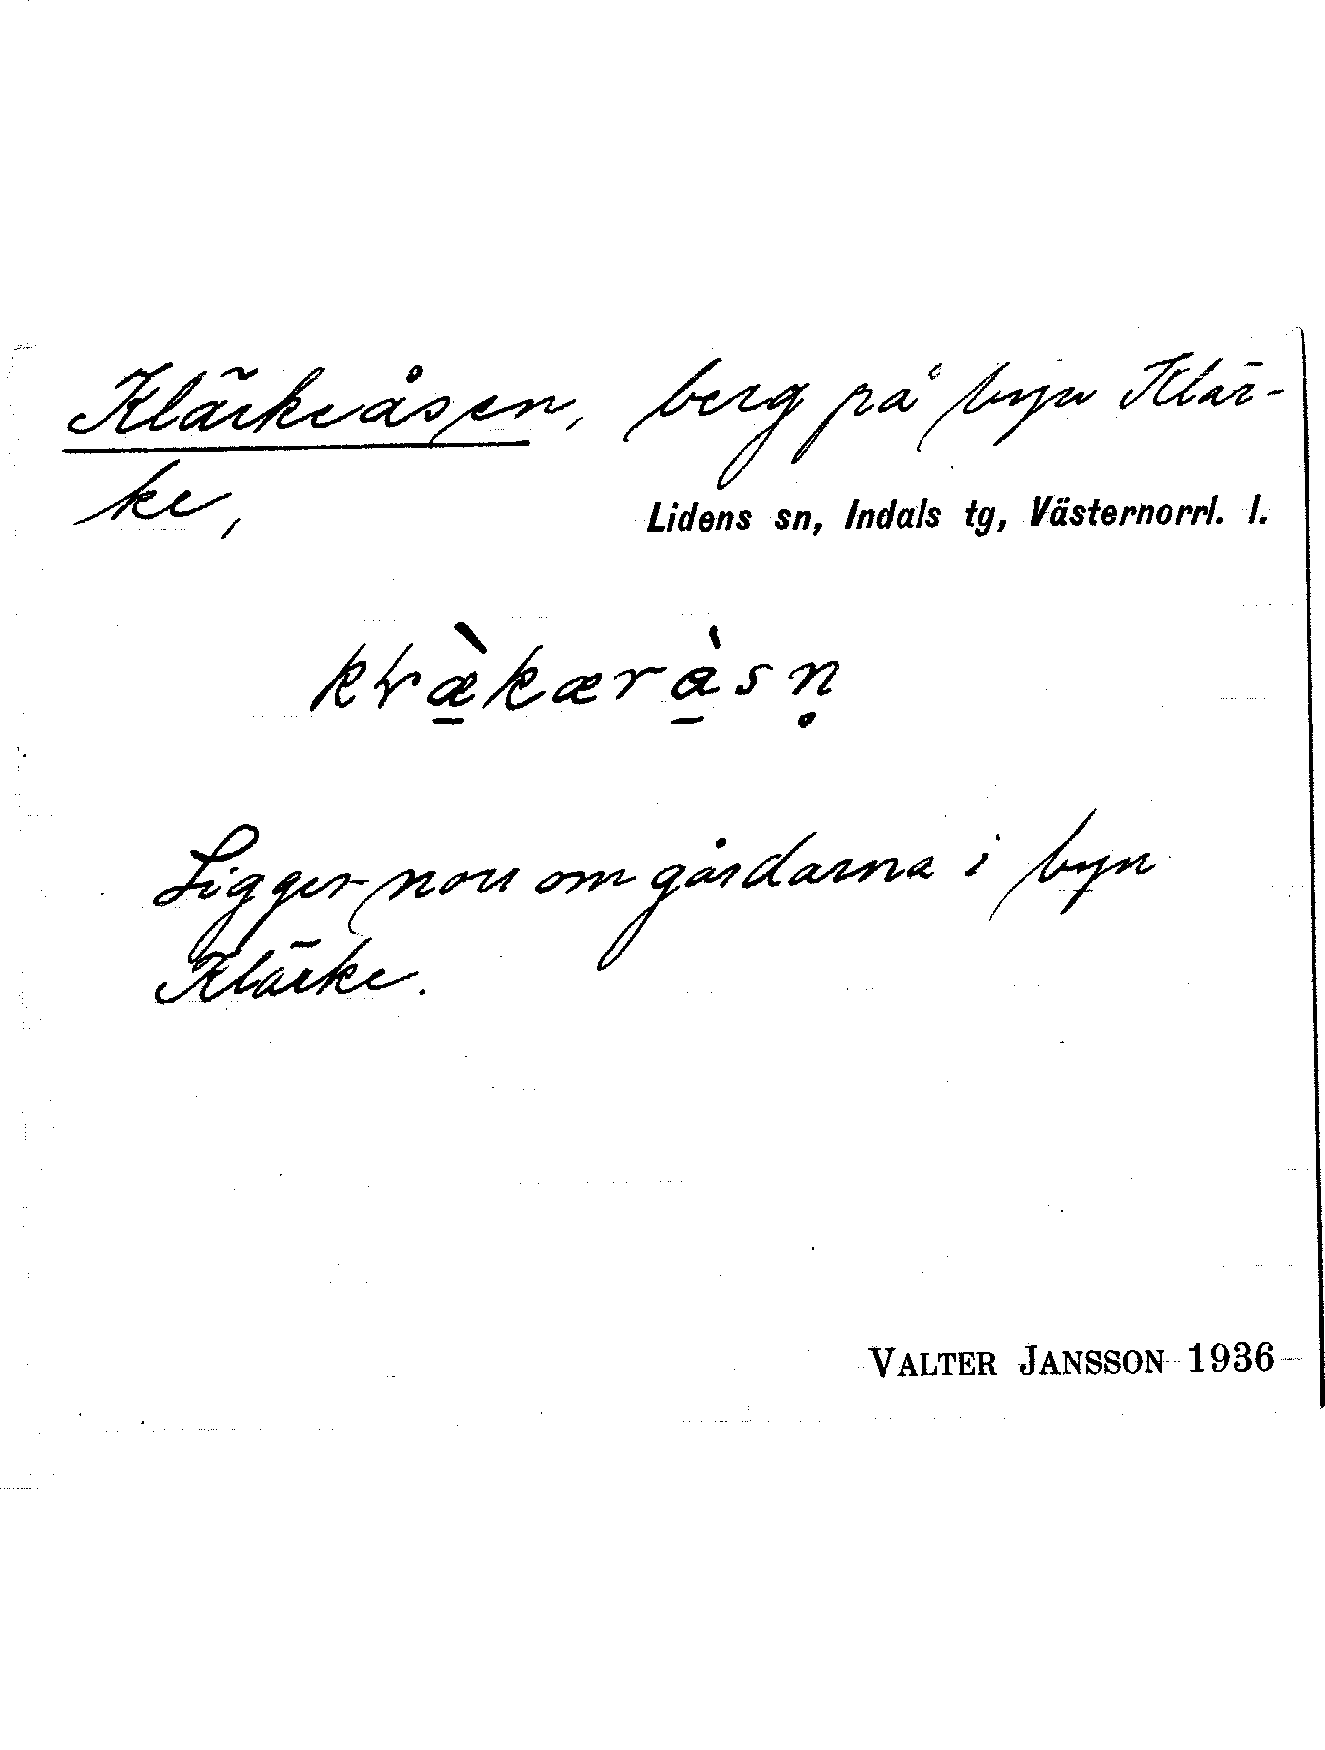 Klärkeåsen, berg på byn Klär-
ke,
Lidens sn, Indals tg, Västernorrl. l.
Ligger norr om gårdarna i byn
Klärke.
VALTER JANSSON 1936